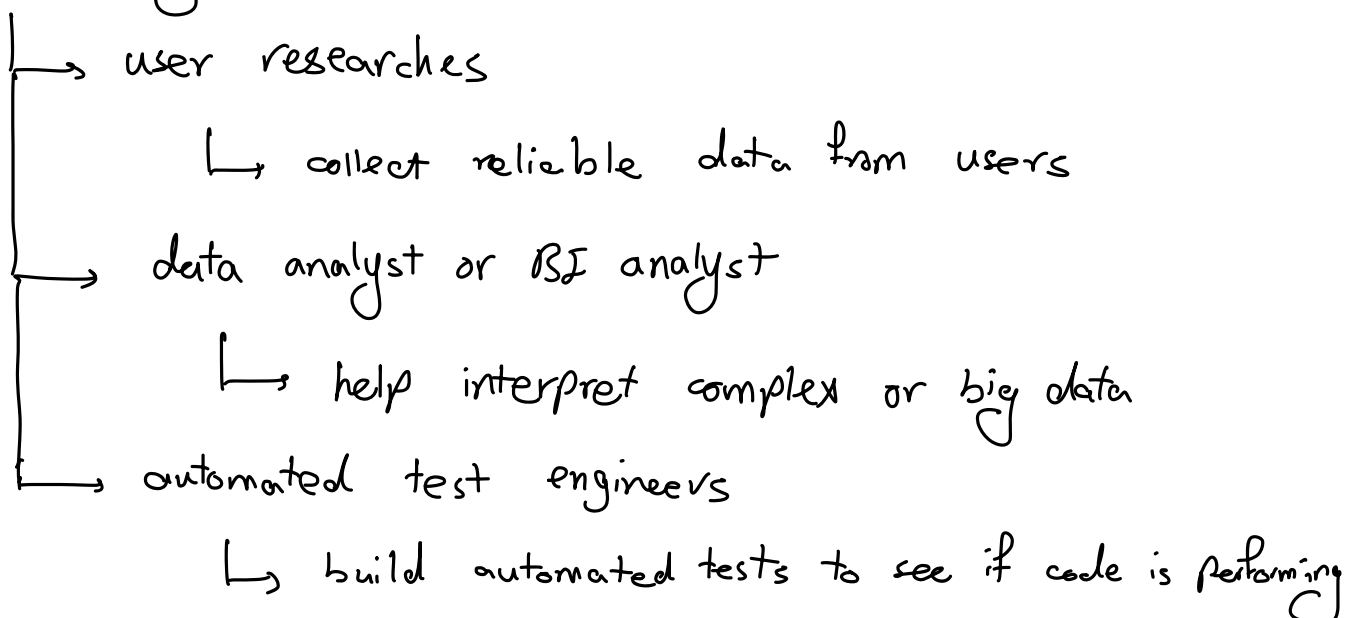 user researches
collect reliable data from users
data analyst or BI analyst
help interpret complex or big data
automated test engineers
build automated tests to see if code is performing